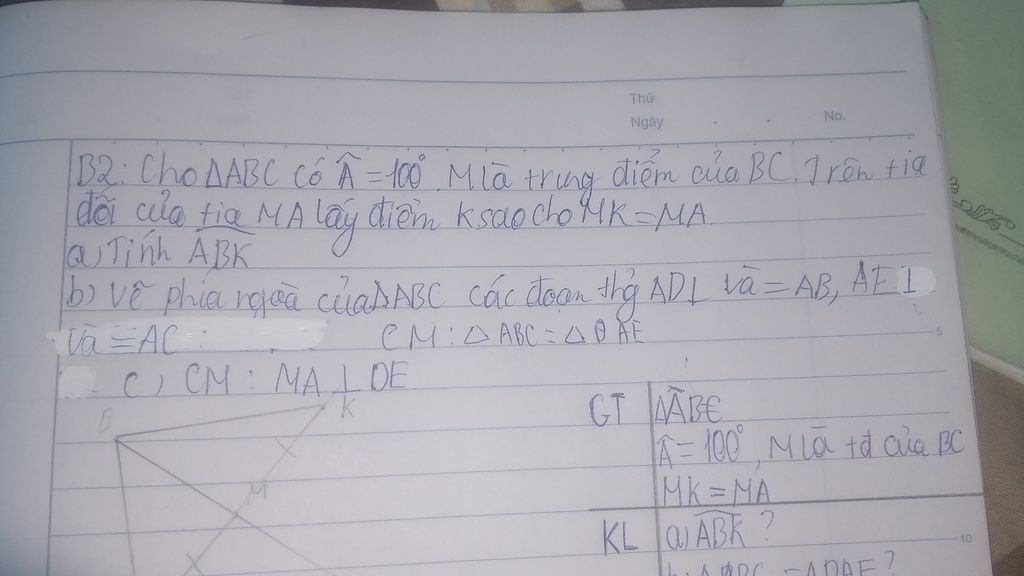 Thứ
Ngày . . No.
B2: Cho ΔABC có Â = 100°. M là trung điểm của BC. Trên tia
đối của tia MA lấy điểm K sao cho MK = MA.
a) Tính ABK
b) Vẽ phía ngoà của ΔABC các đoạn thg AD⊥ và = AB, AE⊥
và = AC : CM : Δ ABC = Δ DAE
C) CM : MA ⊥ DE
B K
M
GT ΔABC
Â = 100°, M là tđ của BC
MK = MA
KL a) ABK ?
5
10